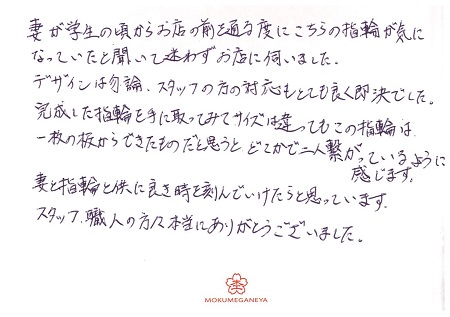 妻が学生の頃からお店の前を通る度にこちらの指輪が気に
なっていたと聞いて迷わずお店に伺いました.
デザインは勿論、スタッフの方の対応もとても良く即決でした。
完成した指輪を手に取ってみてサイズは違ってもこの指輪は
一枚の板からできたものだと思うと どこかで二人繋がっているように
感じます.
妻と指輪と供に良き時を刻んでいけたらと思っています.
スタッフ、職人の方々本当にありがとうございました。
MOKUMEGANEYA